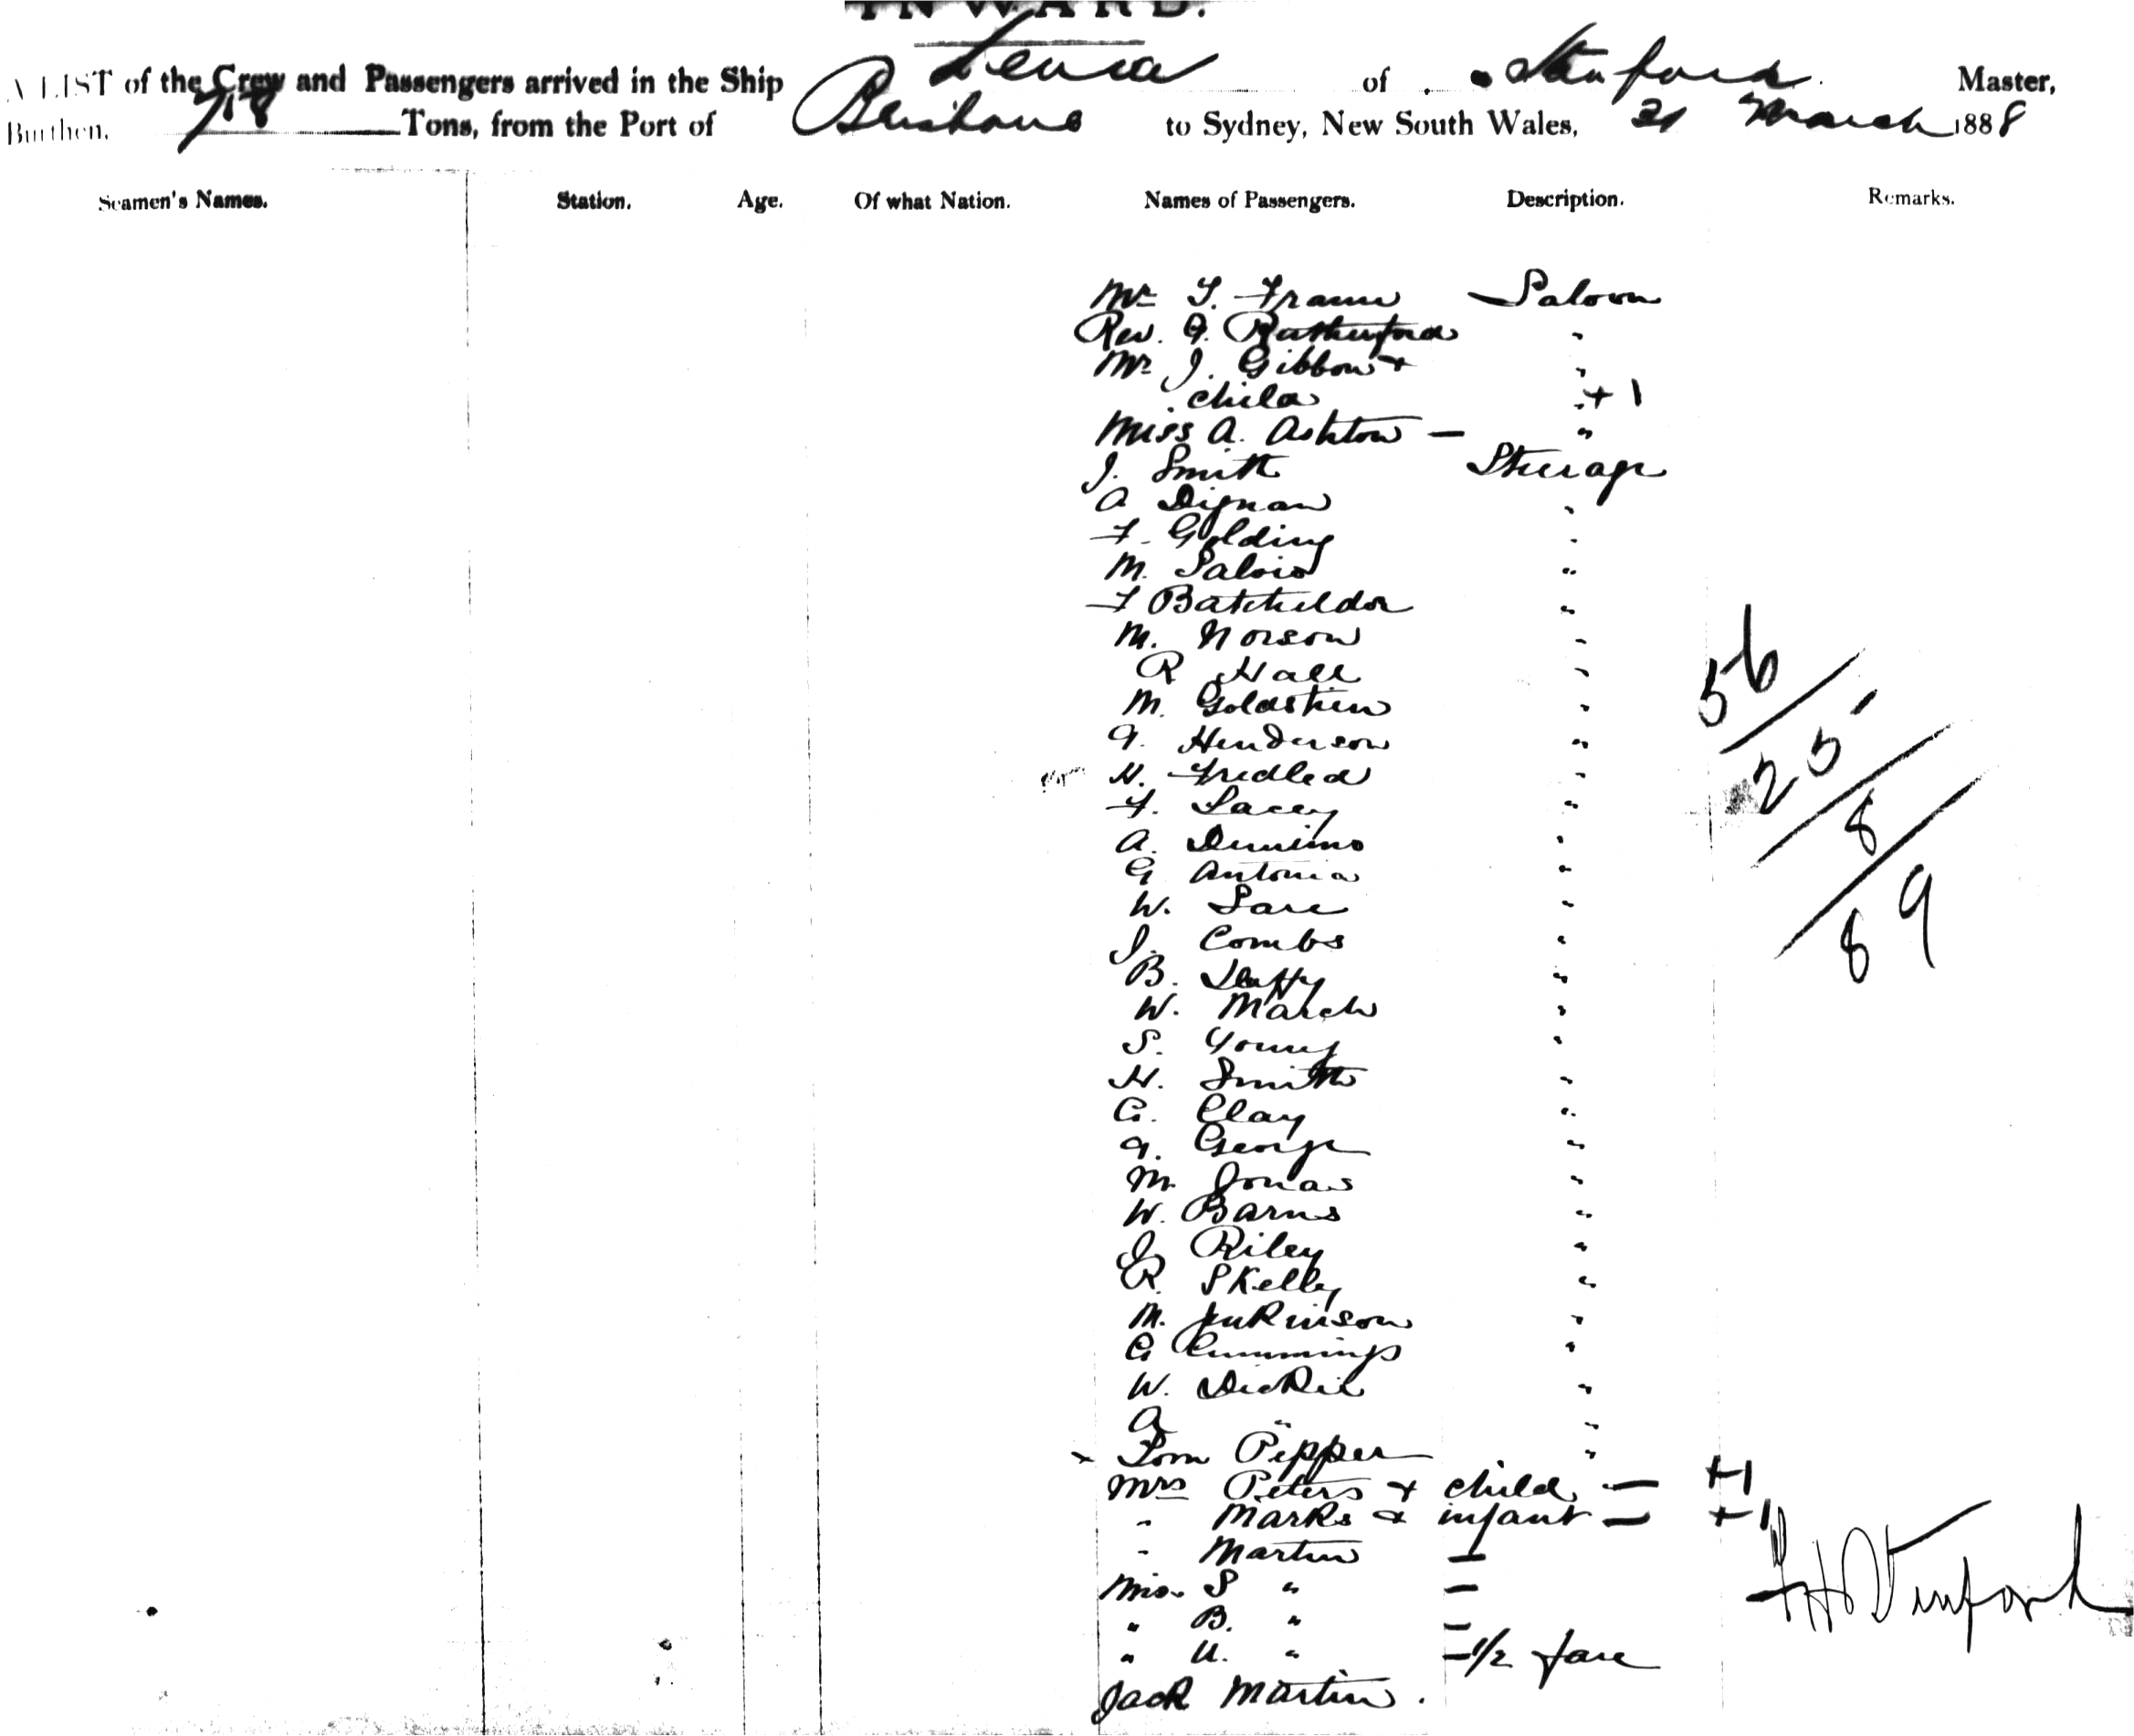 INWARD.
A LIST of the Crew and Passengers arrived in the Ship Leura of Stanford Master,
Burthen, 718 Tons, from the Port of Brisbane to Sydney, New South Wales, 21 March 1888
Seamen's Names. Station. Age. Of what Nation. Names of Passengers. Description. Remarks.
Mr Saloon
Rev. G. Rutherford "
Mr J. Gibbon + "
child " + 1
Miss A. Ashton — "
J. Smith Steerage
A Dignan "
F. Golding "
M. "
F Batcheldor "
M. Norson "
R Hall "
M. Goldstien "
G. Henderson "
H. Fredled "
F. Lacey "
A. "
G Antonia "
W. "
J. Combs "
B. Duffy "
W. March "
S. Young "
H. Smith "
G. Clay "
G. George "
M Jonas "
W. Barns "
J Riley "
R. Skelly "
M. Jenkinson "
G Cummings "
W. Dickie "
A " "
Tom Pepper "
Mrs Peters + child — +1
" Marks & infant — +1
" Martin —
Miss S " —
" B. " —
" U. " — 1/2 fare
Jack Martin.
56
25
8
89